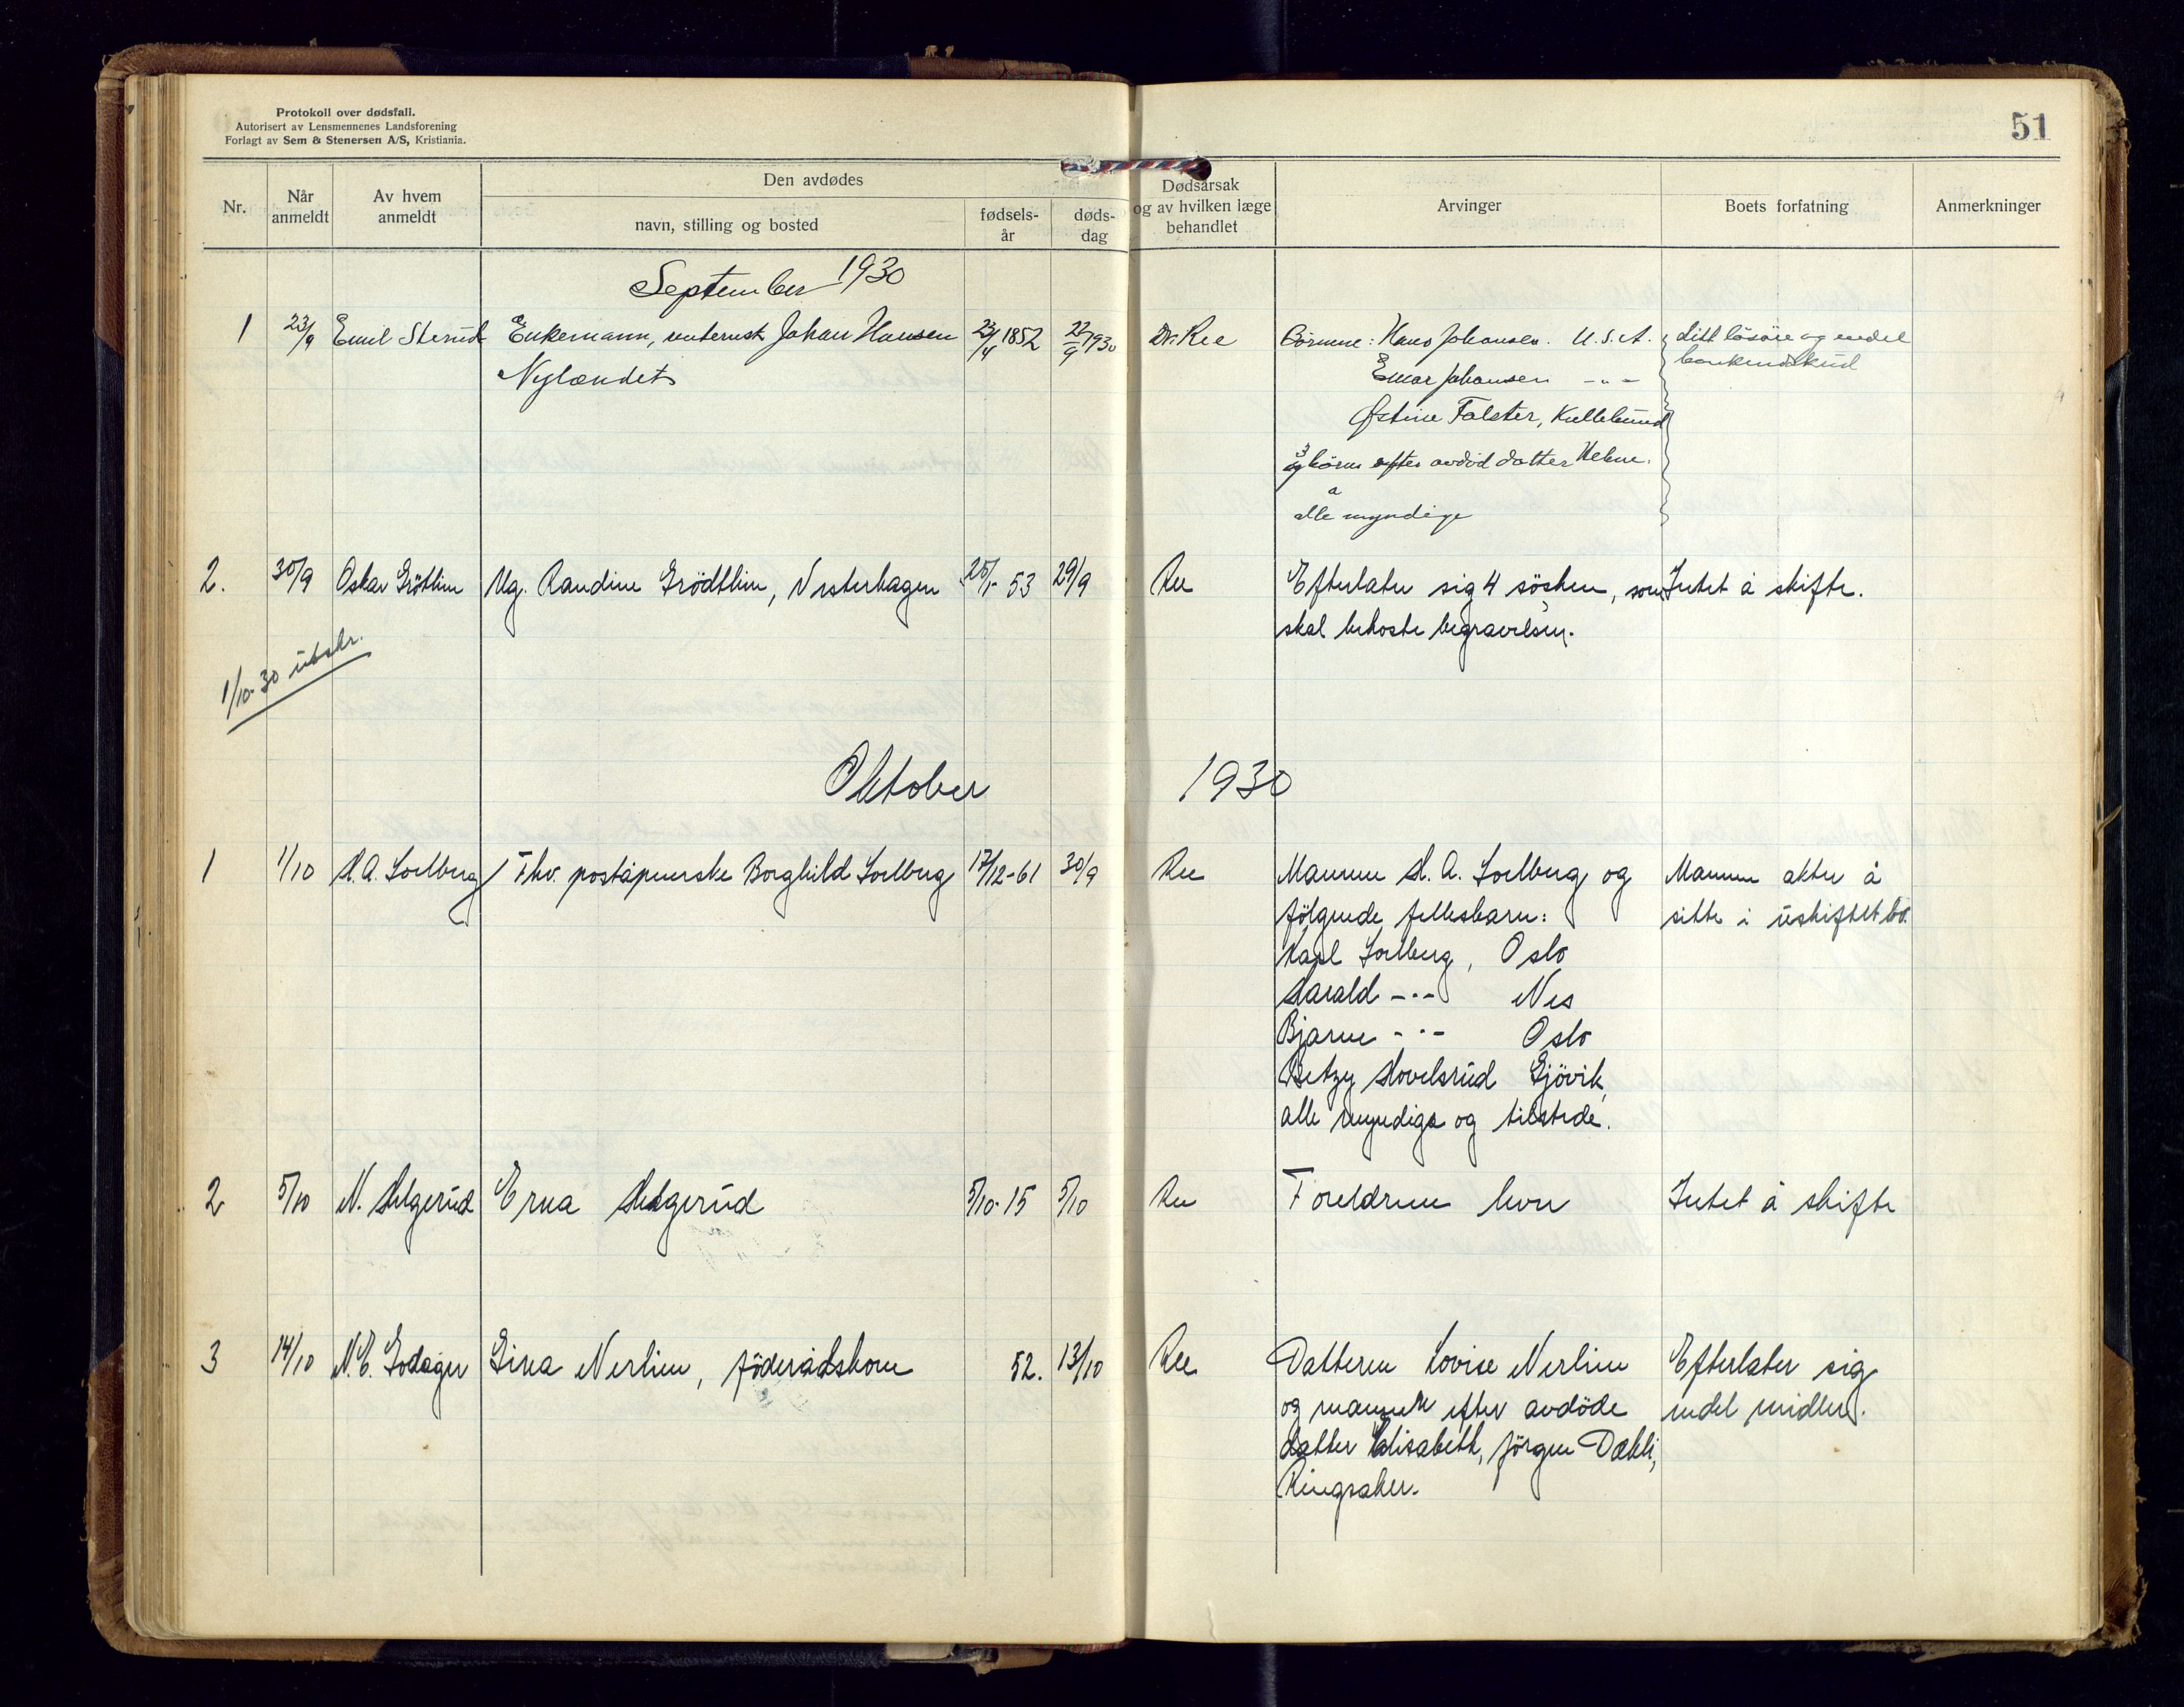 Protokoll over dødsfall.
Autorisert av Lensmennenes Landsforening
Forlagt av Sem & Stenersen A/S, Kristiania.
51
Nr.
Når anmeldt
Av hvem anmeldt
Den avdødes
navn, stilling og bosted
fødsels-år
døds-dag
Dødsårsak og av hvilken læge behandlet
Arvinger
Boets forfatning
Anmerkninger
September 1930
1 23/9 Emil Sterud Enkemann, Johan Hansen 23/4 1852 22/9 1930 Dr. Ree Börnene: Hans Johansen. U.S.A. Litt lösöre og endel
Nylændet Einar Johansen -"-
Falster,
3 börn efter avdöd datter Helene.
alle myndige
2. 30/9 Oskar Grötlien Ug. Randine Grödtlien, Vesterhagen 53 29/9 Ree Efterlater sig 4 sösken, som Intet å skifte.
skal bekoste begravelsen.
1/10-30 utskr.
Oktober 1930
1 1/10 H.A. Soelberg Fhv. poståpnerske Borghild Soelberg 17/12-61 30/9 Ree Mannen H.A. Soelberg og Mannen akter å
fölgende fellesbarn: sitte i uskiftet bo.
Karl Soelberg, Oslo
Harald -"- Nes
Bjarne -"- Oslo
Betzy Hovelsrud Gjövik,
alle myndige og tilstede.
2 5/10 N. Helgerud Erna Helgerud 5/10-15 5/10 Ree Foreldrene lever Intet å skifte
3 14/10 N.E. Godager Gina Nerlien, föderådskone 52. 13/10 Ree Datteren Lovise Nerlien Efterlater sig
og mannen efter avdöde endel midler.
datter Elisabeth, Jörgen Dæhli,
Ringsaker.